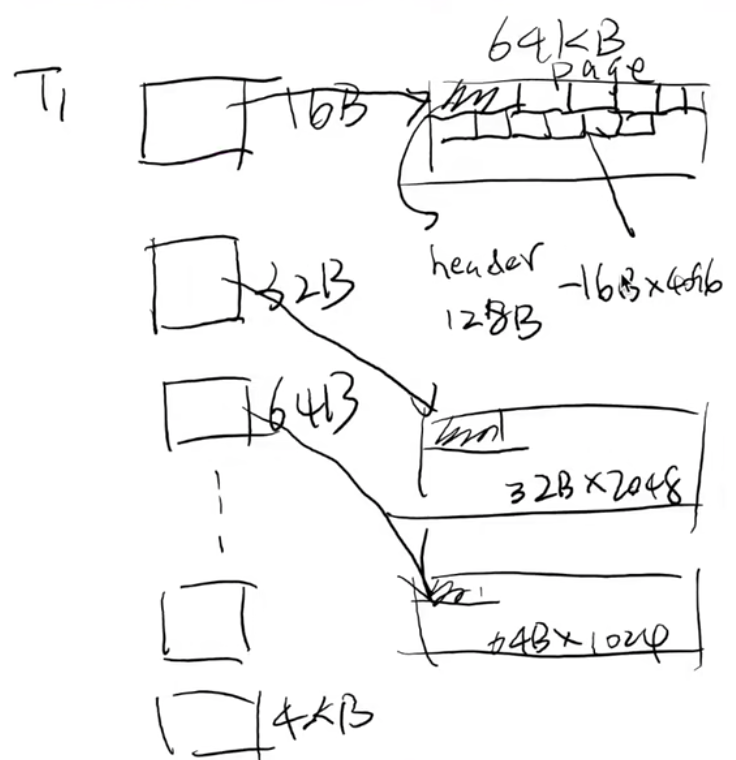 64KB
page
T1
16B
header
128B
-16B×4096
32B
64B
32B×2048
64B×1024
4KB